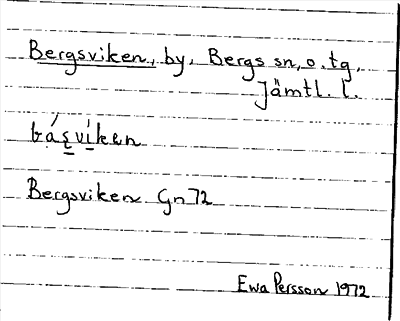 Bergsviken, by, Bergs sn, o. tg,
Jämtl. l.
Bergsviken Gn 72
Ewa Persson 1972